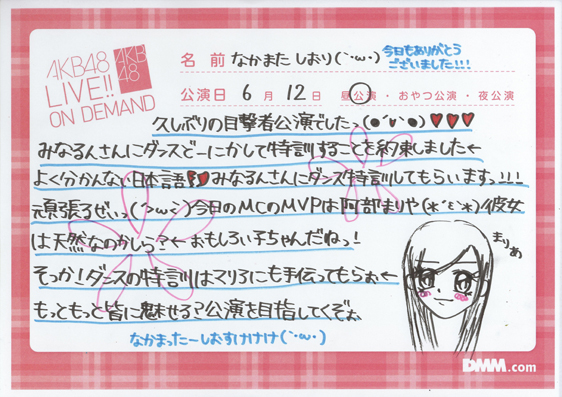 AKB48
LIVE!!
ON DEMAND
AKB
48
名前 なかまた しおり(`･ω･)
今日もありがとう
ございました!!!
公演日 6月12日 昼公演・おやつ公演・夜公演
久しぶりの目撃者公演でしたっ(●´v`●)♥♥♥
みなるんさんにダンスどーにかして特訓することを約束しました←
よく分かんない日本語 みなるんさんにダンス特訓してもらいますっ!!!
頑張るぜぃっ(`>ω<´)今日のMCのMVPは阿部まりや(*´ε`*)彼女
は天然なのかしら?←おもしろい子ちゃんだねっ!
そっか!ダンスの特訓はマリろにも手伝ってもらぉ←
もっともっと皆に魅せる?公演を目指してくぞぉ
なかまったーしおすけけけ(`･ω･)
まりぁ
DMM.com